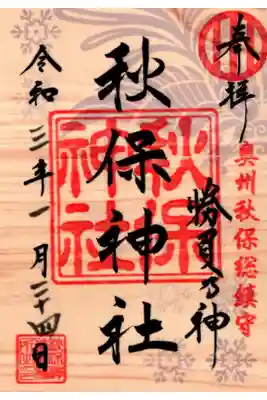 奉拝
奥州秋保総鎮守
勝負乃神
秋保神社
秋保
神社
令和三年一月二十四日